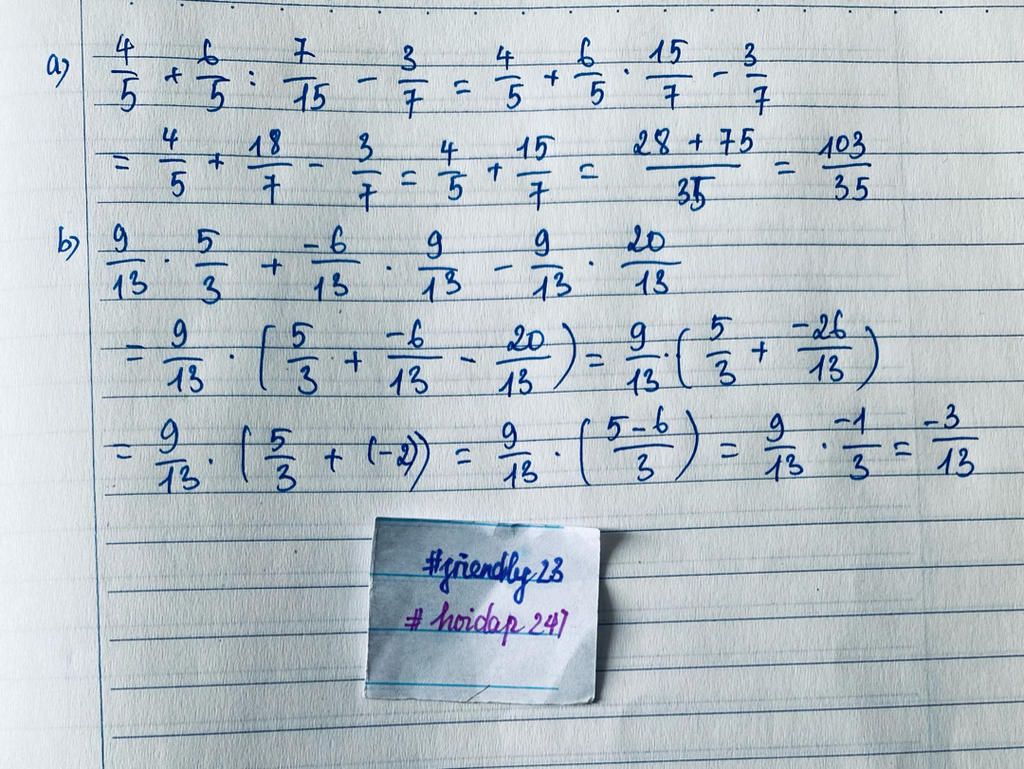 a) 4/5 + 6/5 : 7/15 - 3/7 = 4/5 + 6/5 . 15/7 - 3/7
= 4/5 + 18/7 - 3/7 = 4/5 + 15/7 = (28 + 75)/35 = 103/35
b) 9/13 . 5/3 + -6/13 . 9/13 - 9/13 . 20/13
= 9/13 . (5/3 + -6/13 - 20/13) = 9/13 . (5/3 + -26/13)
= 9/13 . (5/3 + (-2)) = 9/13 . ((5 - 6)/3) = 9/13 . -1/3 = -3/13
#friendly23
# hoidap 247